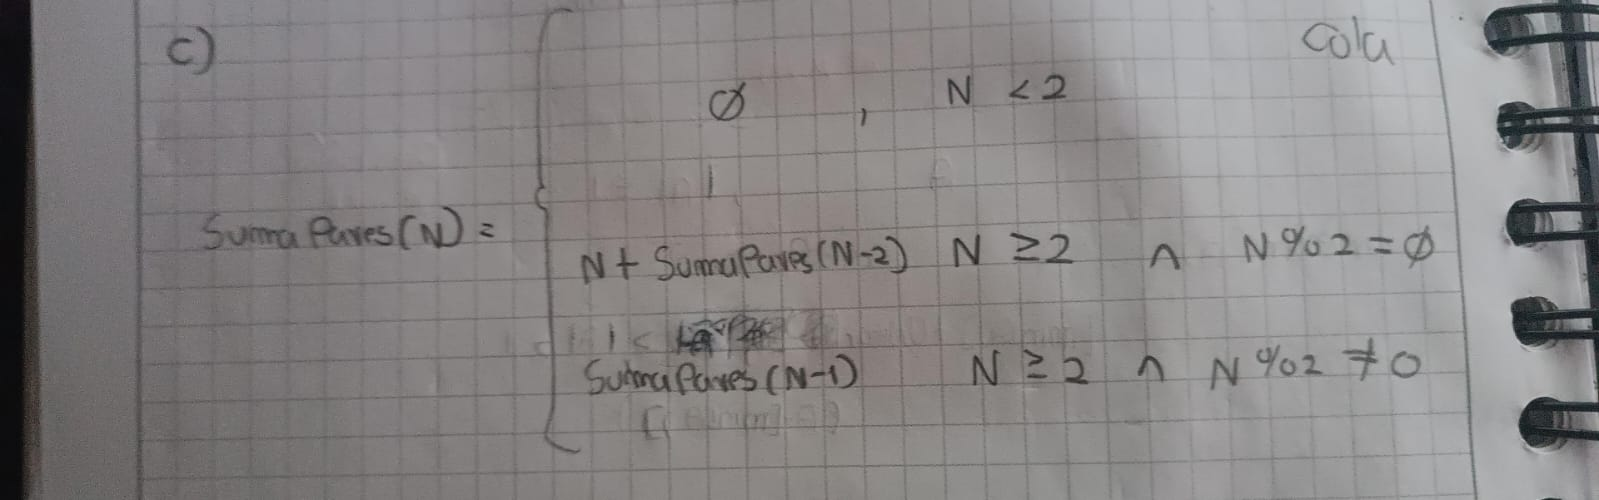 c)
Cola
Ø , N < 2
SumaPares(N) =
N + SumaPares(N-2) N ≥ 2 ∧ N % 2 = Ø
SumaPares(N-1) N ≥ 2 ∧ N % 2 ≠ 0